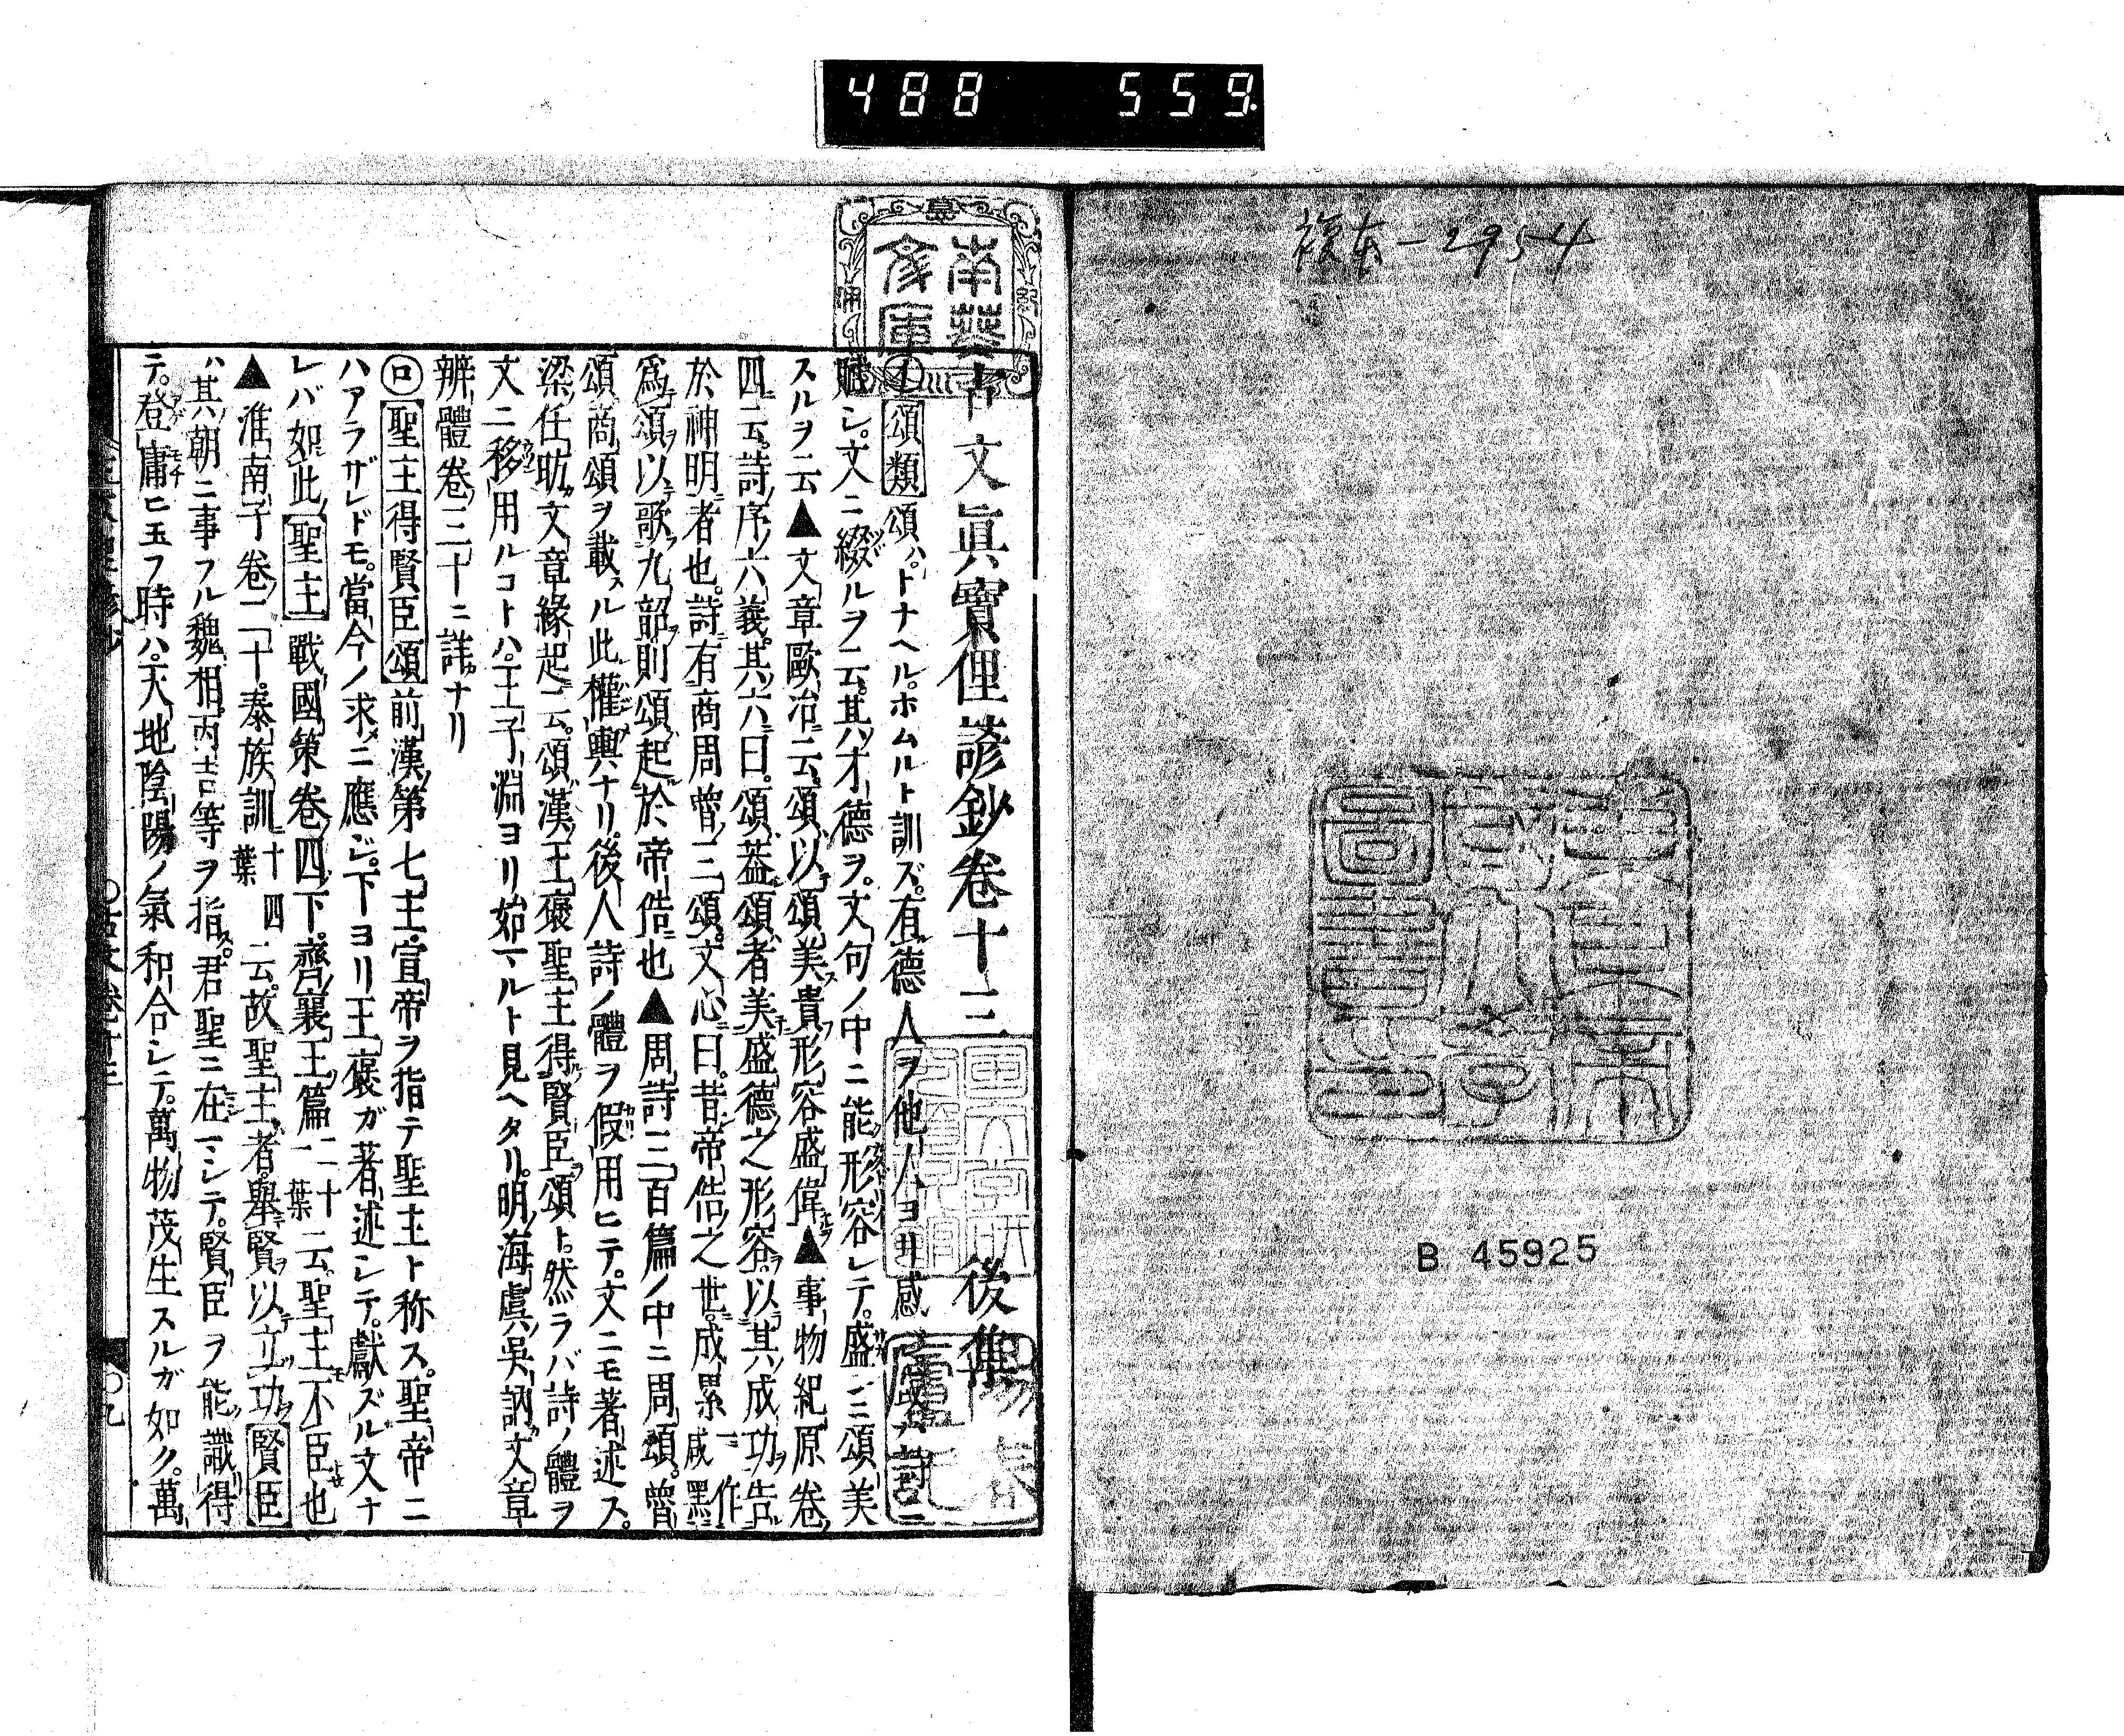 488 559
複本-2954
東京帝國大學圖書之
B 45925
南葵文庫
古文眞寶俚諺鈔卷十三 後集
㋑頌類頌ハ。トナヘル。ホムルト訓ズ。有德人ヲ他人ヨリ感
賦シ。文ニ綴ルヲ云。其才德ヲ。文句ノ中ニ能形容シテ。盛ニ頌美
スルヲ云▲文章歐冶云。頌以頌美貴形容盛偉▲事物紀原卷
四云。詩序六義。其六曰。頌。蓋頌者美盛德之形容。以其成功告
於神明者也。詩有商周曾三頌。文心曰。昔帝俈之世。咸累一作咸黑
爲頌以歌九韶則頌起於帝俈也▲周詩三百篇ノ中ニ周頌。曾
頌商頌ヲ載スル此權輿ナリ。後人詩ノ體ヲ假用ヒテ。文ニモ著述ス。
梁任昉文章緣起云。頌漢王褒聖主得賢臣頌ト。然ラバ詩ノ體ヲ
文ニ移用ルコトハ。王子淵ヨリ始マルト見ヘタリ。明海虞吳訥文章
辨體卷三十ニ詳ナリ
㋺聖主得賢臣頌前漢第七主宣帝ヲ指テ聖主ト称ス。聖帝ニ
ハアラザレドモ。當今ノ求ニ應ジ。下ヨリ王褒ガ著述シテ。獻ズル文ナ
レバ如此聖主戰國策卷四下。齊襄王篇二十一葉云聖主不臣也
▲淮南子卷二十。泰族訓十四葉云。故聖主者。舉賢以立功賢臣
ハ其朝ニ事フル魏相。丙吉等ヲ指。君聖ニ在マシテ。賢臣ヲ能識得
テ。登庸ヒ玉フ時ハ。天地陰陽ノ氣和合シテ。萬物茂生スルガ如ク。萬